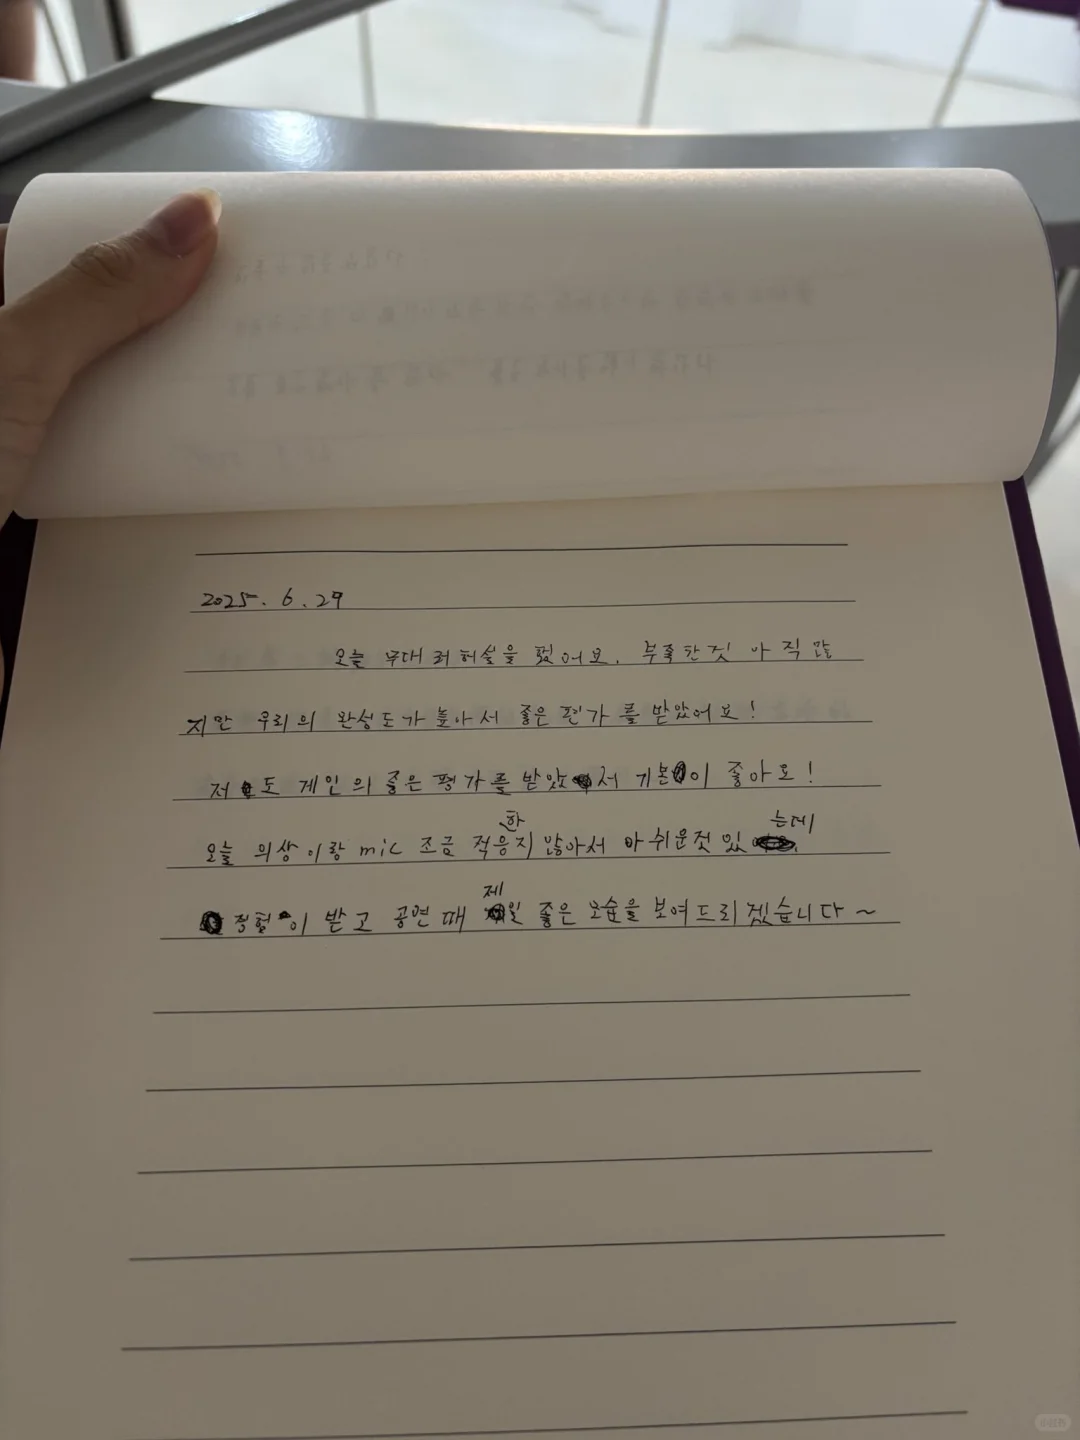 2025. 6. 29
오늘 무대 러허설을 했어요. 부족한것 아직 많
지만 우리의 완성도가 높아서 좋은 평가를 받았어요!
저도 게인의 좋은 평가를 받았서 기본이 좋아요!
오늘 의상이랑 mic 조금 적응한지 않아서 아쉬운것 있는데
경험이 받고 공연때 제일 좋은 모습을 보여드리겠습니다~